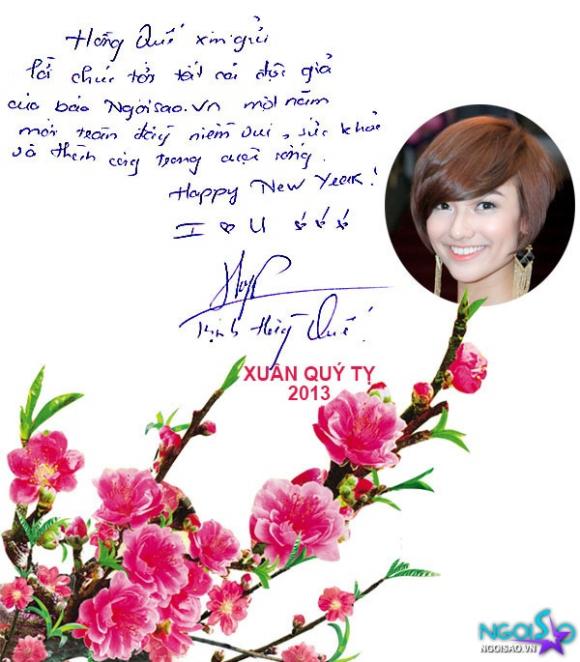 Hồng Quế xin gửi
lời chúc tới tất cả độc giả
của báo Ngôisao.vn một năm
mới tràn đầy niềm vui, sức khỏe
và thành công trong cuộc sống.
Happy New Year!
I ♥ U
Trịnh Hồng Quế!
XUÂN QUÝ TỴ
2013
NGOISAO
NGOISAO.VN